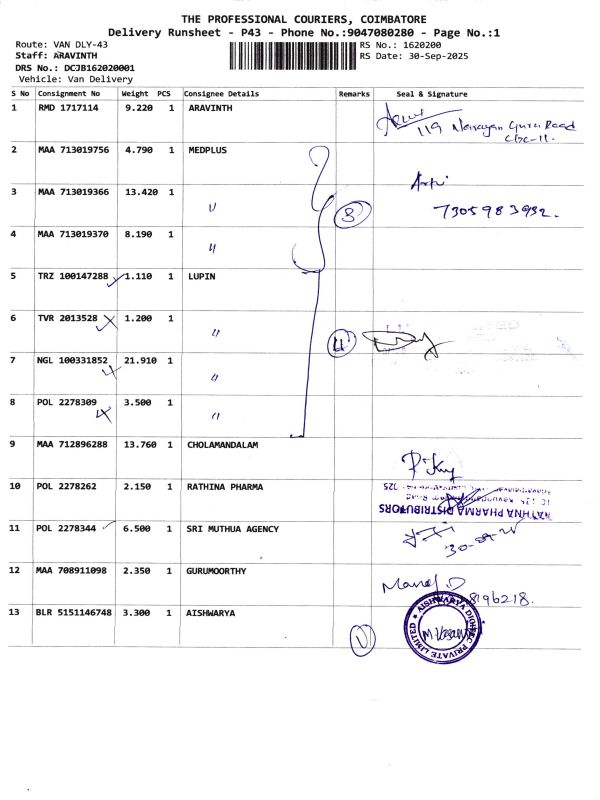 THE PROFESSIONAL COURIERS, COIMBATORE
Delivery Runsheet - P43 - Phone No.:9047080280 - Page No.:1
Route: VAN DLY-43
RS No.: 1620200
Staff: ARAVINTH
RS Date: 30-Sep-2025
DRS No.: DCJB162020001
Vehicle: Van Delivery
S No Consignment No Weight PCS Consignee Details Remarks Seal & Signature
1 RMD 1717114 9.220 1 ARAVINTH
119 Narayan Guru Road
CBE-11.
2 MAA 713019756 4.790 1 MEDPLUS
3 MAA 713019366 13.420 1 " 3
7305983932.
4 MAA 713019370 8.190 1 "
5 TRZ 100147288 1.110 1 LUPIN
6 TVR 2013528 1.200 1 " 4
7 NGL 100331852 21.910 1 "
8 POL 2278309 3.500 1 "
9 MAA 712896288 13.760 1 CHOLAMANDALAM
10 POL 2278262 2.150 1 RATHINA PHARMA
RATHNA PHARMA DISTRIBUTORS
11 POL 2278344 6.500 1 SRI MUTHUA AGENCY
12 MAA 708911098 2.350 1 GURUMOORTHY
8196218.
13 BLR 5151146748 3.300 1 AISHWARYA
PRIVATE LIMITED